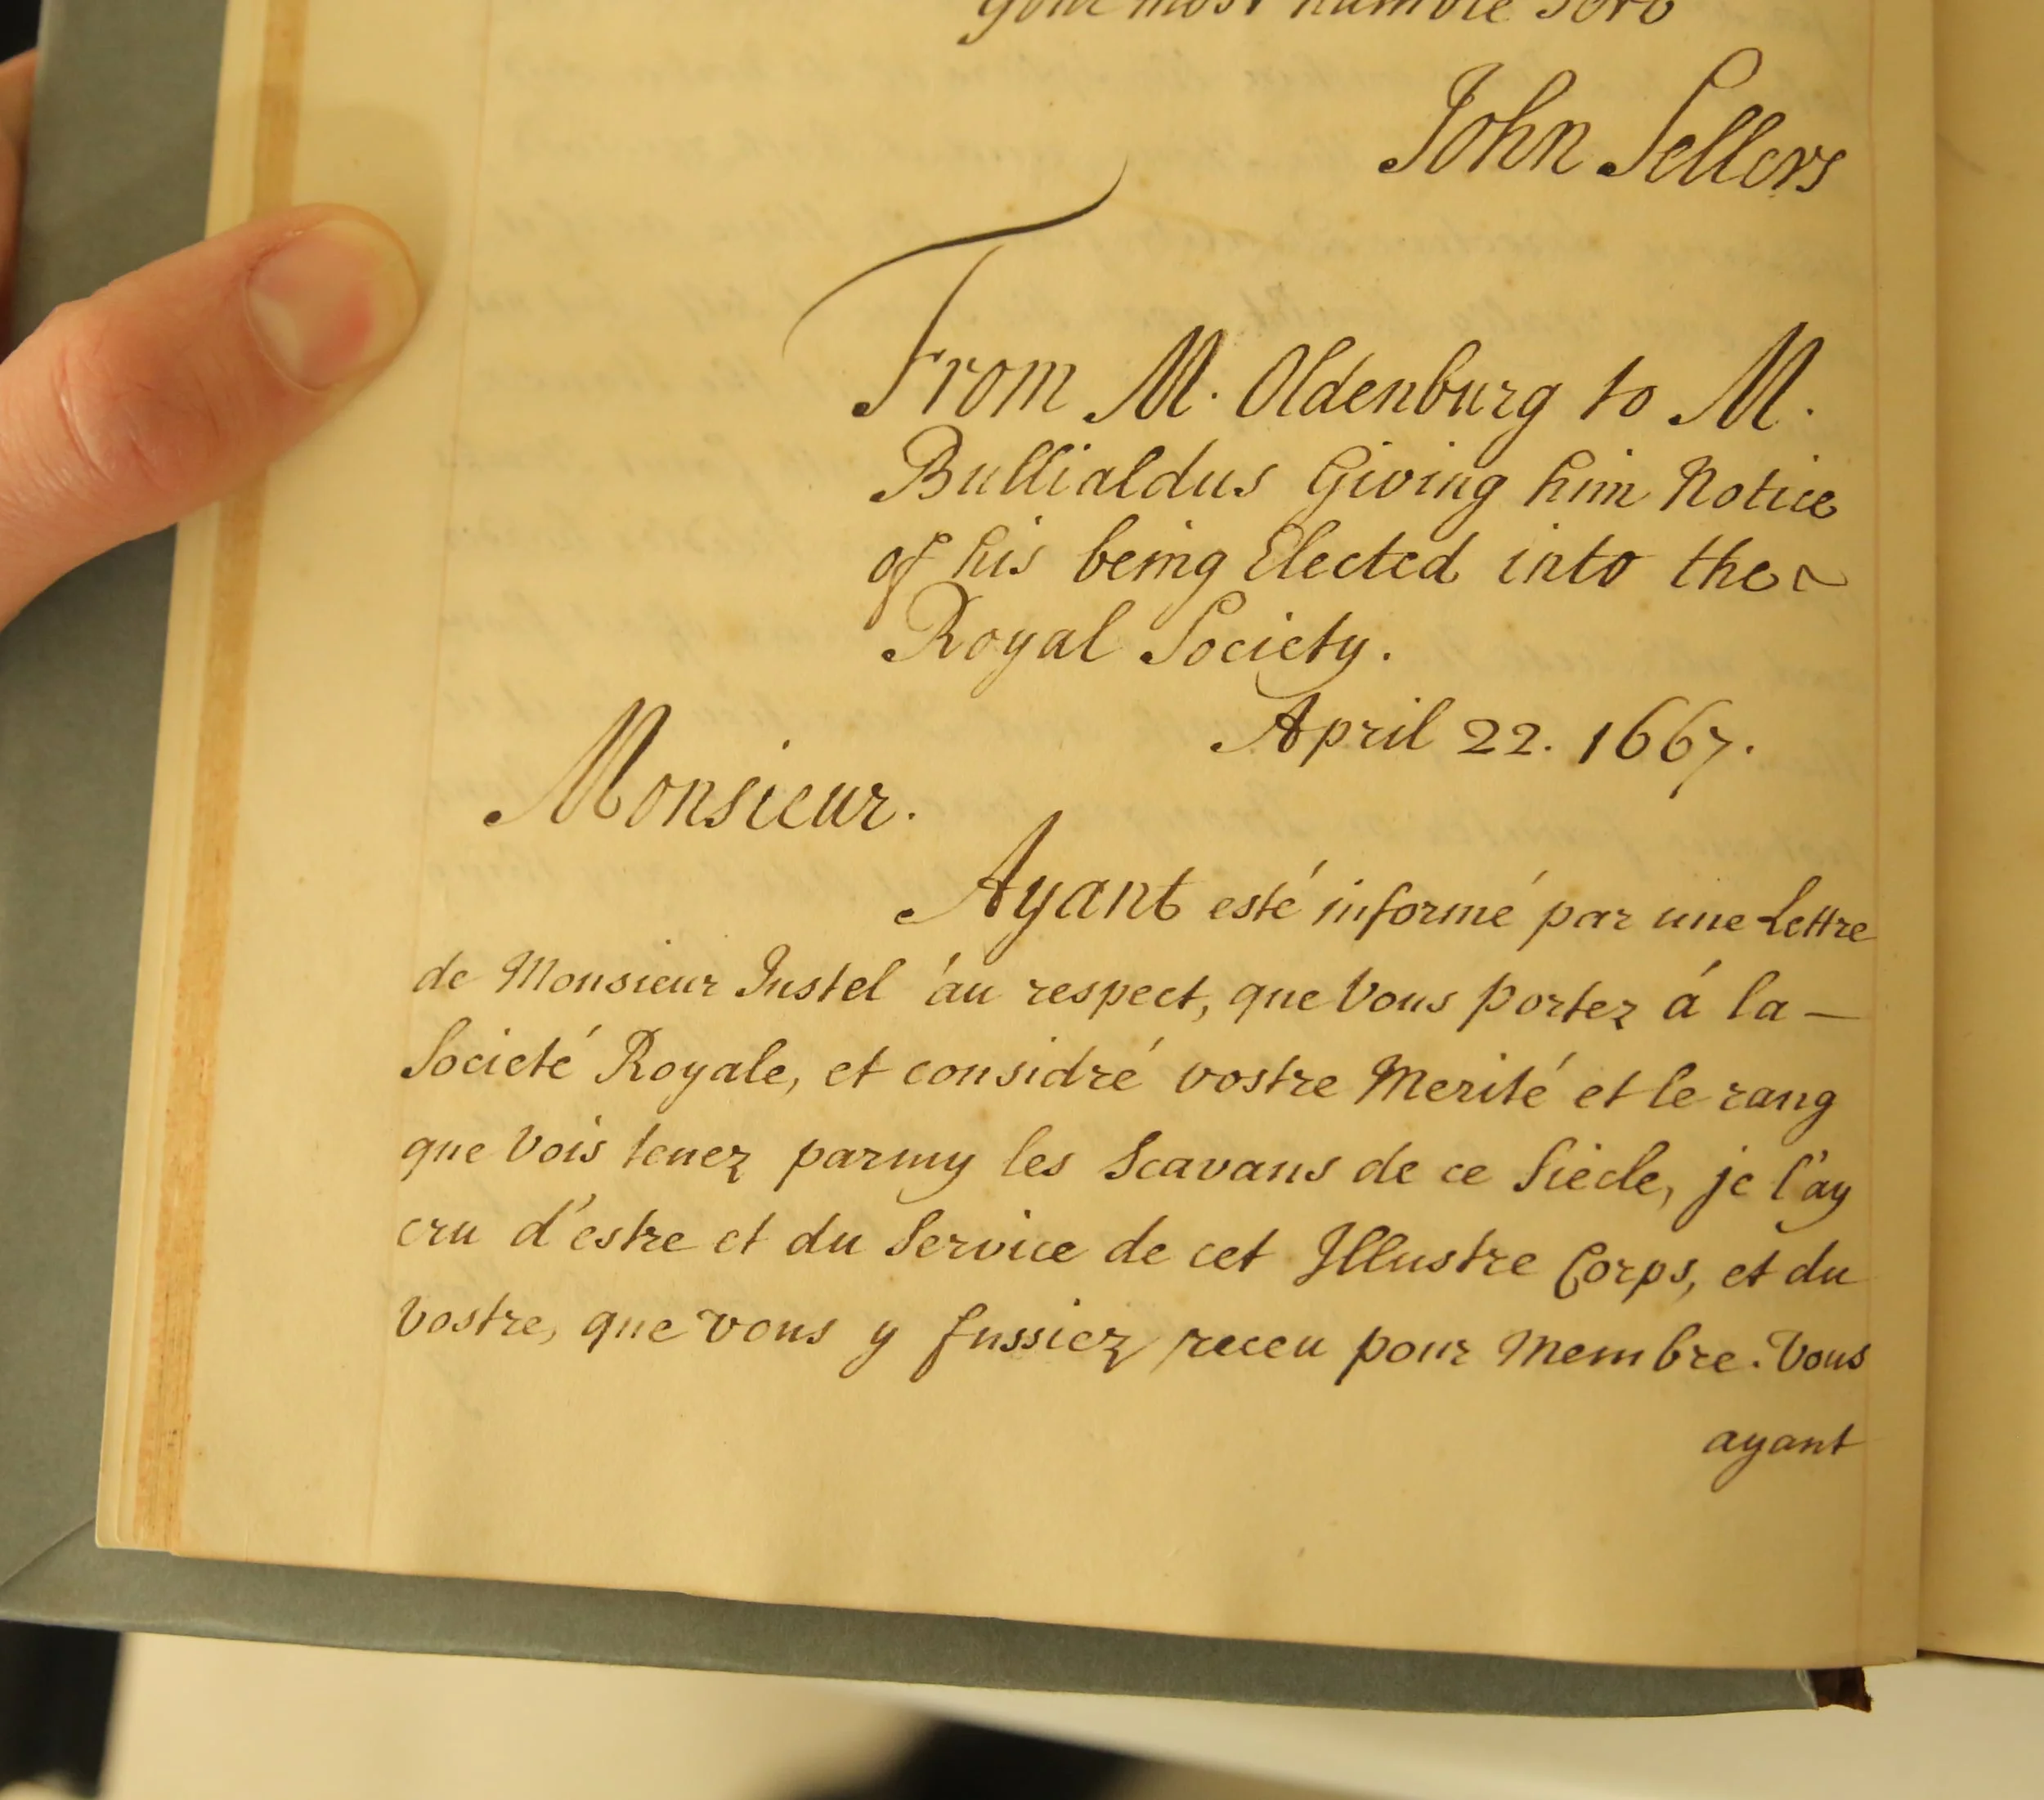 your most humble Serv
John Sellers
From M. Oldenburg to M.
Bullialdus Giving him Notice
of his being Elected into the
Royal Society.
April 22. 1667.
Monsieur.
Ayant esté informé par une Lettre
de Monsieur Justel áu respect, que Vous portez á la —
Societé Royale, et considré vostre Merité et le rang
que Vois tenez parmy les Scavans de ce Siécle, je l'ay
cru d'estre et du Service de cet Illustre Corps, et du
Vostre, que vous y fussiez receu pour Membre. Vous
ayant